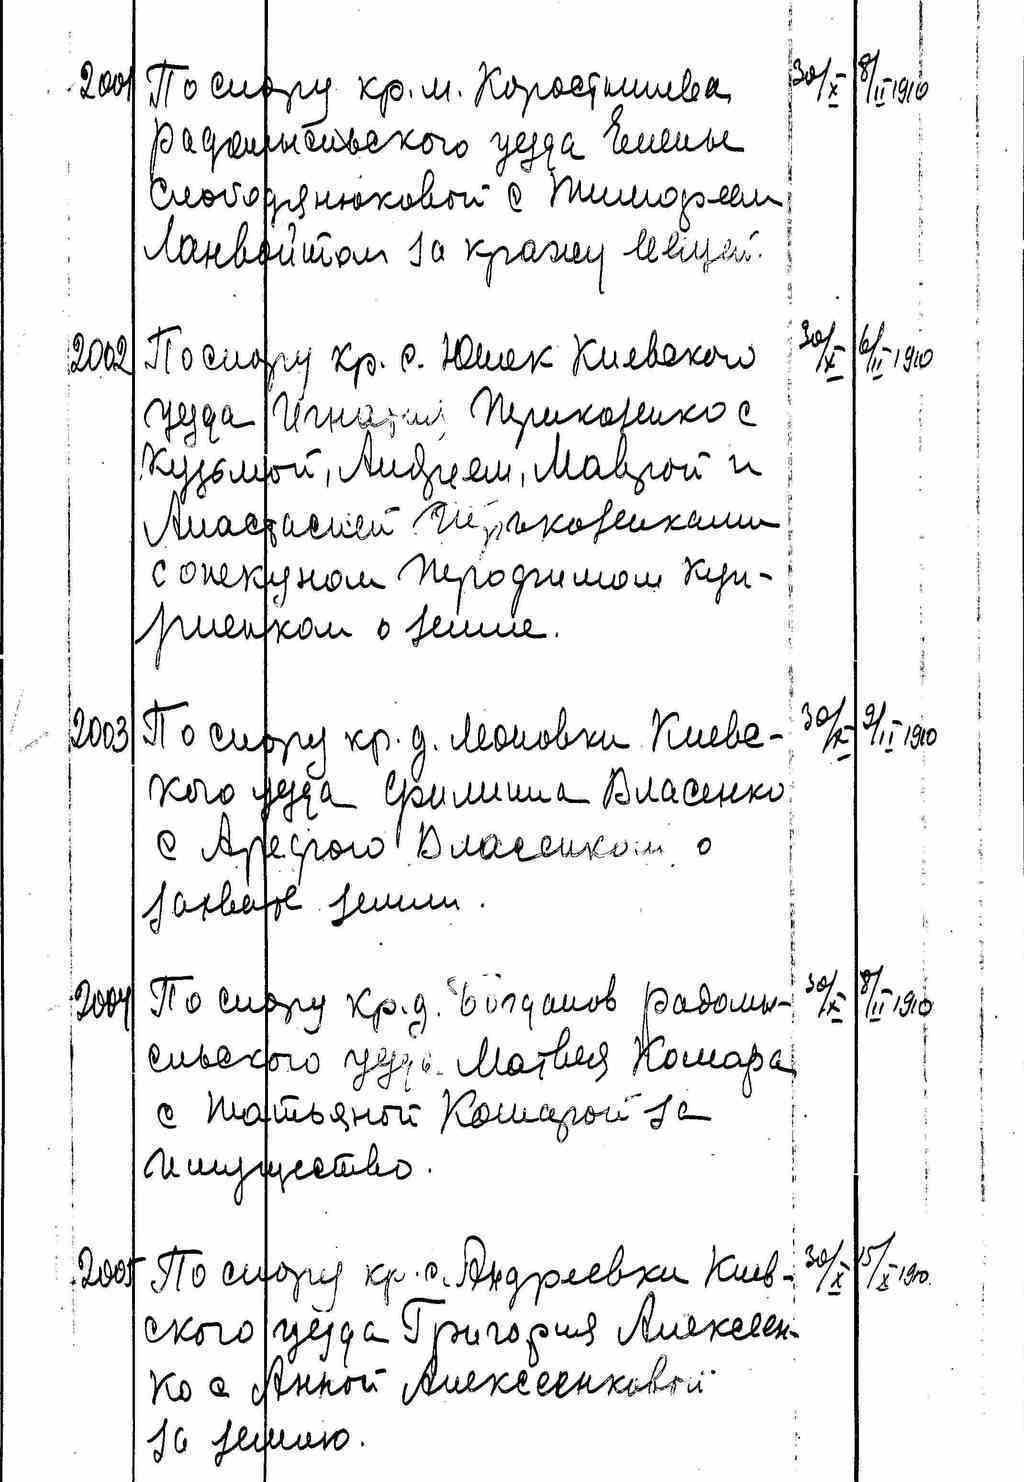 2001 По спору кр. м. Коростышева 30/X 8/II 1910
Радомысльского уезда Елены
Слободянюковой с Тимофеем
Ланвойтом за кражу вещей.
2002 По спору кр. с. Юшек Киевского 30/X 6/II 1910
уезда Игнатия с
Кузьмой, Андреем, Маврой и
Анастасией
с опекуном Куп-
риенком о земле.
2003 По спору кр. д. Леоновки Киевс- 30/X 9/II 1910
кого уезда Филиппа Власенко
с Арефою Власенком о
захвате земли.
2004 По спору кр. д. Богданов Радомы- 30/X 8/II 1910
сльского уезда Матвея Комара
с Татьяной Комарой за
имущество.
2005 По спору кр. с. Андреевки Киев- 30/X 15/X 1910.
ского уезда Григория Алексеен-
ко с Анной Алексеенковой
за землю.